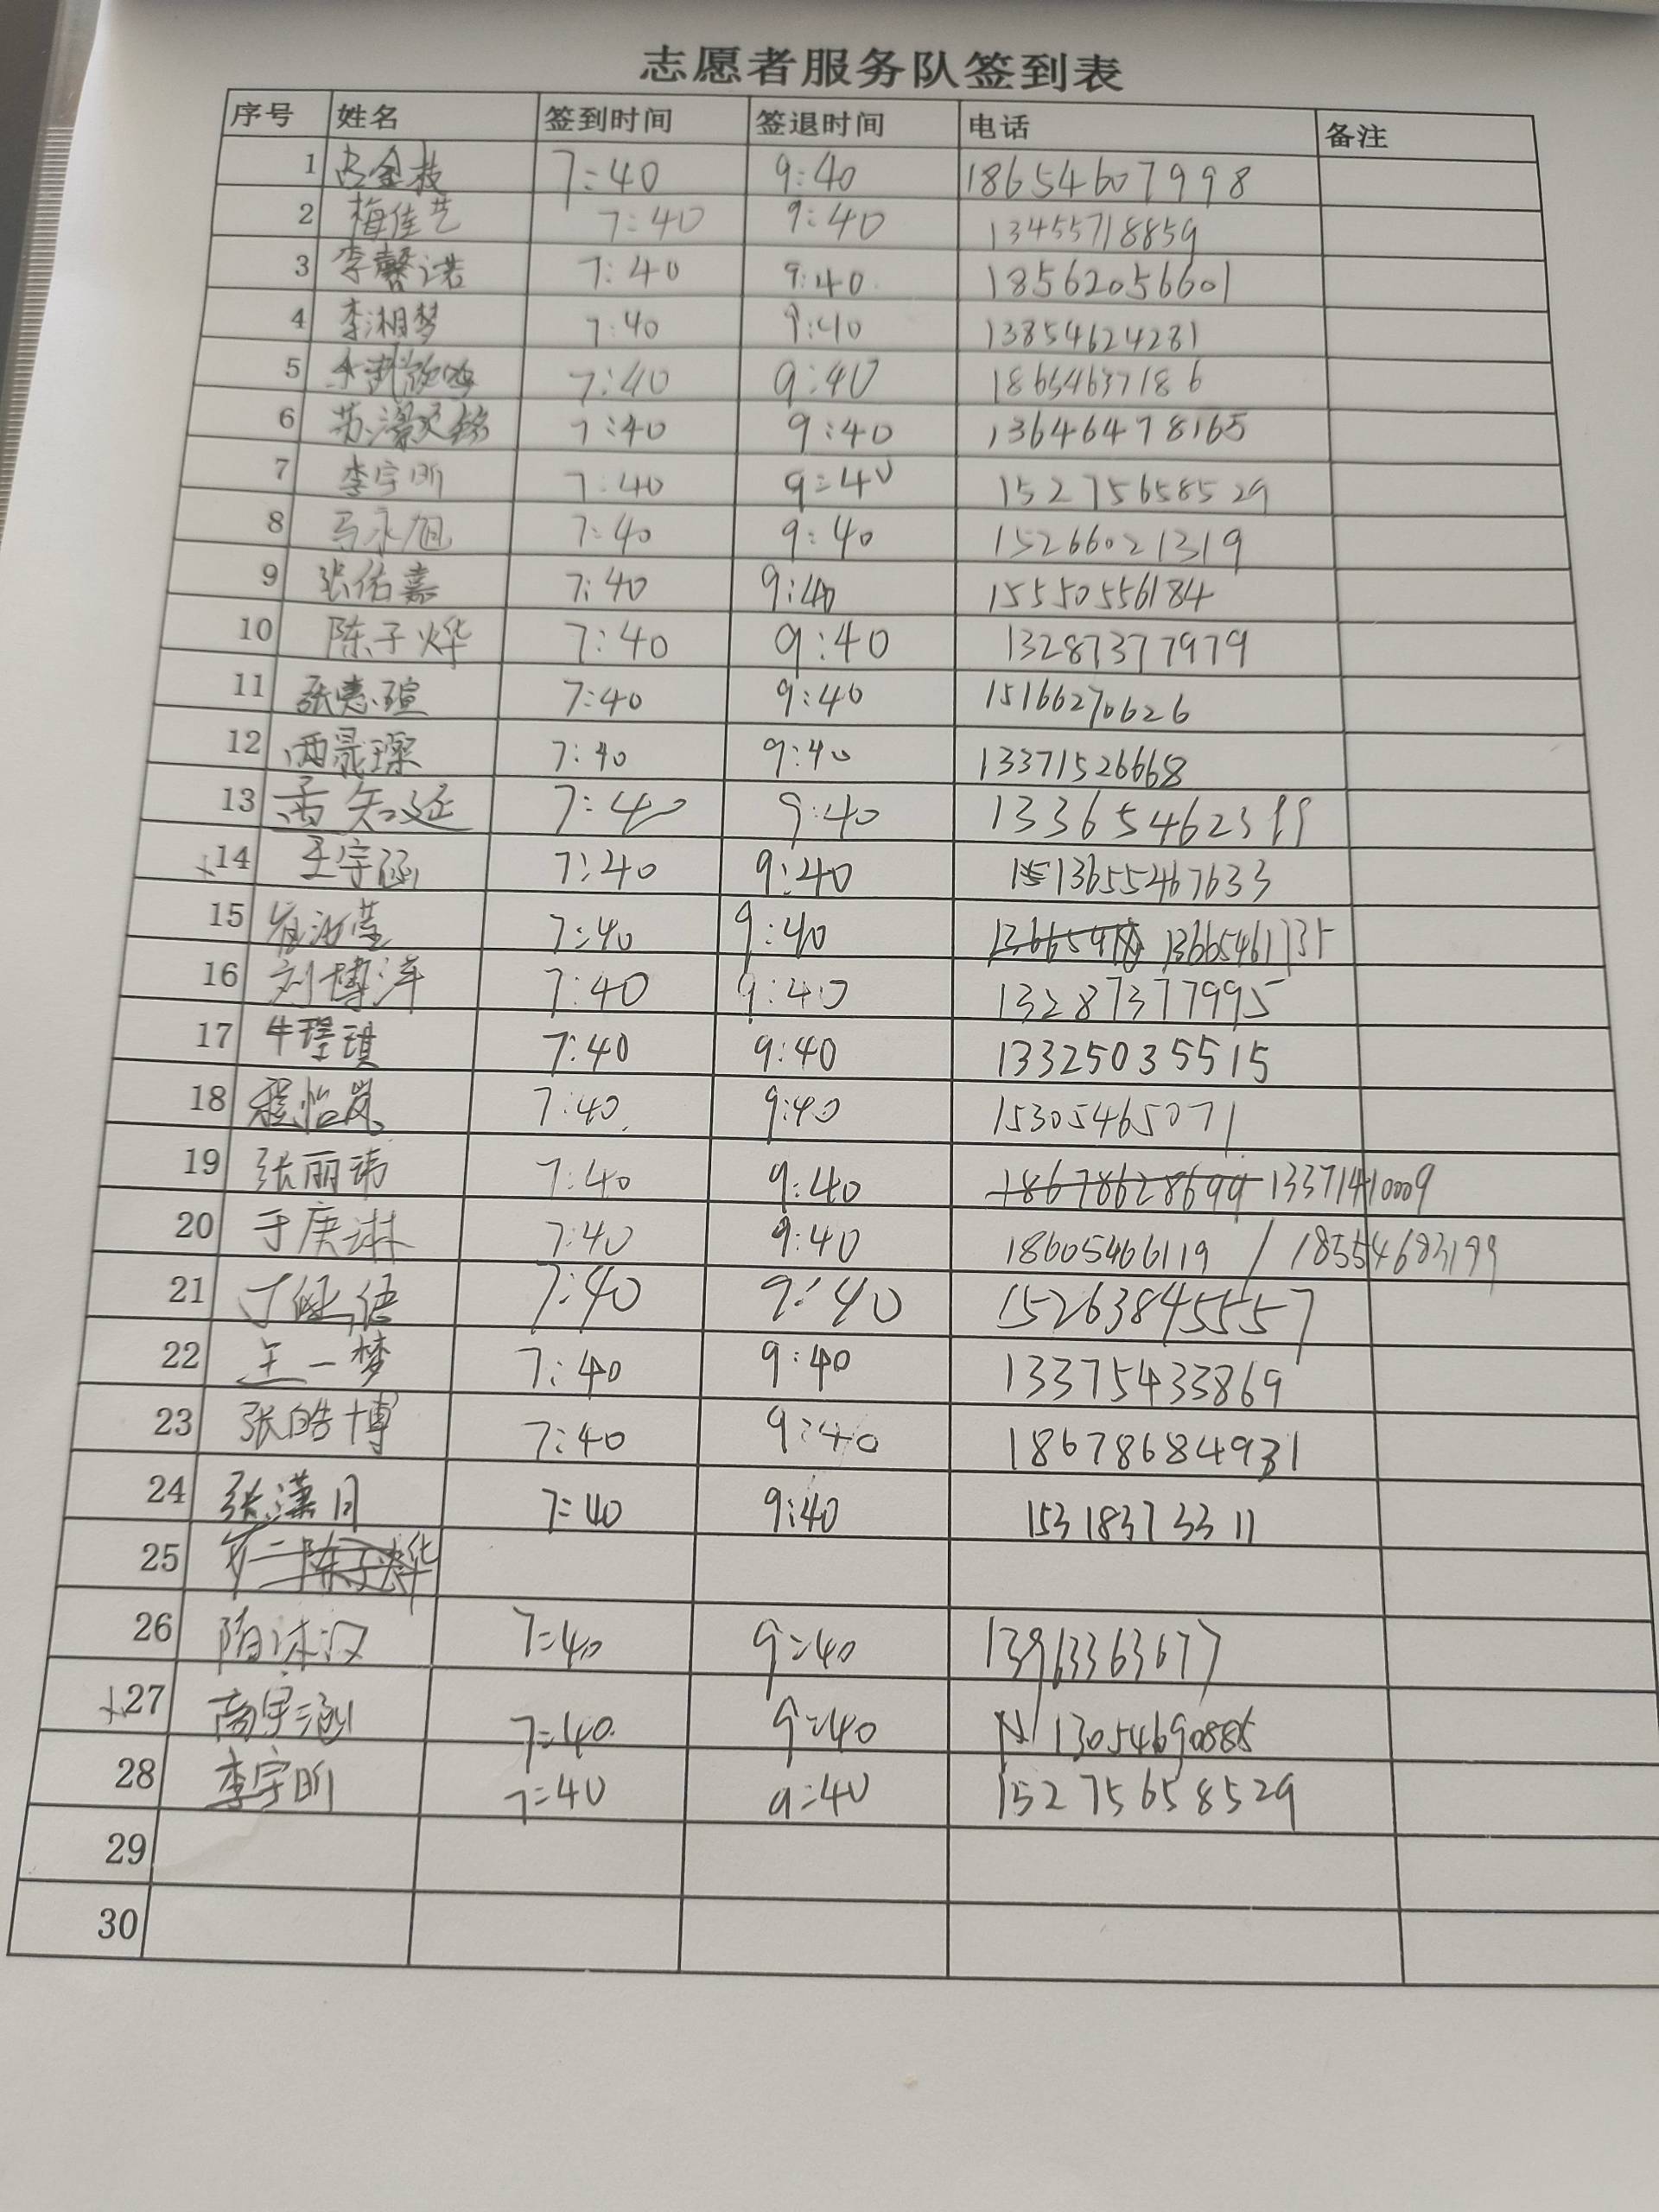 志愿者服务队签到表
序号 姓名 签到时间 签退时间 电话 备注
1 7:40 9:40 18654607998
2 梅佳艺 7:40 9:40 13455718859
3 李馨诺 7:40 9:40 18562056601
4 李湘梦 7:40 9:40 13854624281
5 7:40 9:40 18654637186
6 7:40 9:40 13646478165
7 李宇昕 7:40 9:40 15275658529
8 马永旭 7:40 9:40 15266021319
9 张佑嘉 7:40 9:40 15550556184
10 陈子烨 7:40 9:40 13287377979
11 张惠瑄 7:40 9:40 15166270626
12 7:40 9:40 13371526668
13 孟知延 7:40 9:40
14 王宇涵 7:40 9:40 13655467633
15 7:40 9:40
16 刘博洋 7:40 9:40 13287377995
17 牛瑆琪 7:40 9:40 13325035515
18 程怡岚 7:40 9:40 15305465071
19 张丽玮 7:40 9:40 18678628699 13371410009
20 于庚淋 7:40 9:40 18605466119 / 18554683199
21 7:40 9:40 15263845557
22 王一梦 7:40 9:40 13375433869
23 张皓博 7:40 9:40 18678684931
24 张潇月 7:40 9:40 15318373311
25 陈子烨
26 隋沐汉 7:40 9:40 13963363677
27 高宇涵 7:40 9:40
28 李宇昕 7:40 9:40 15275658529
29
30